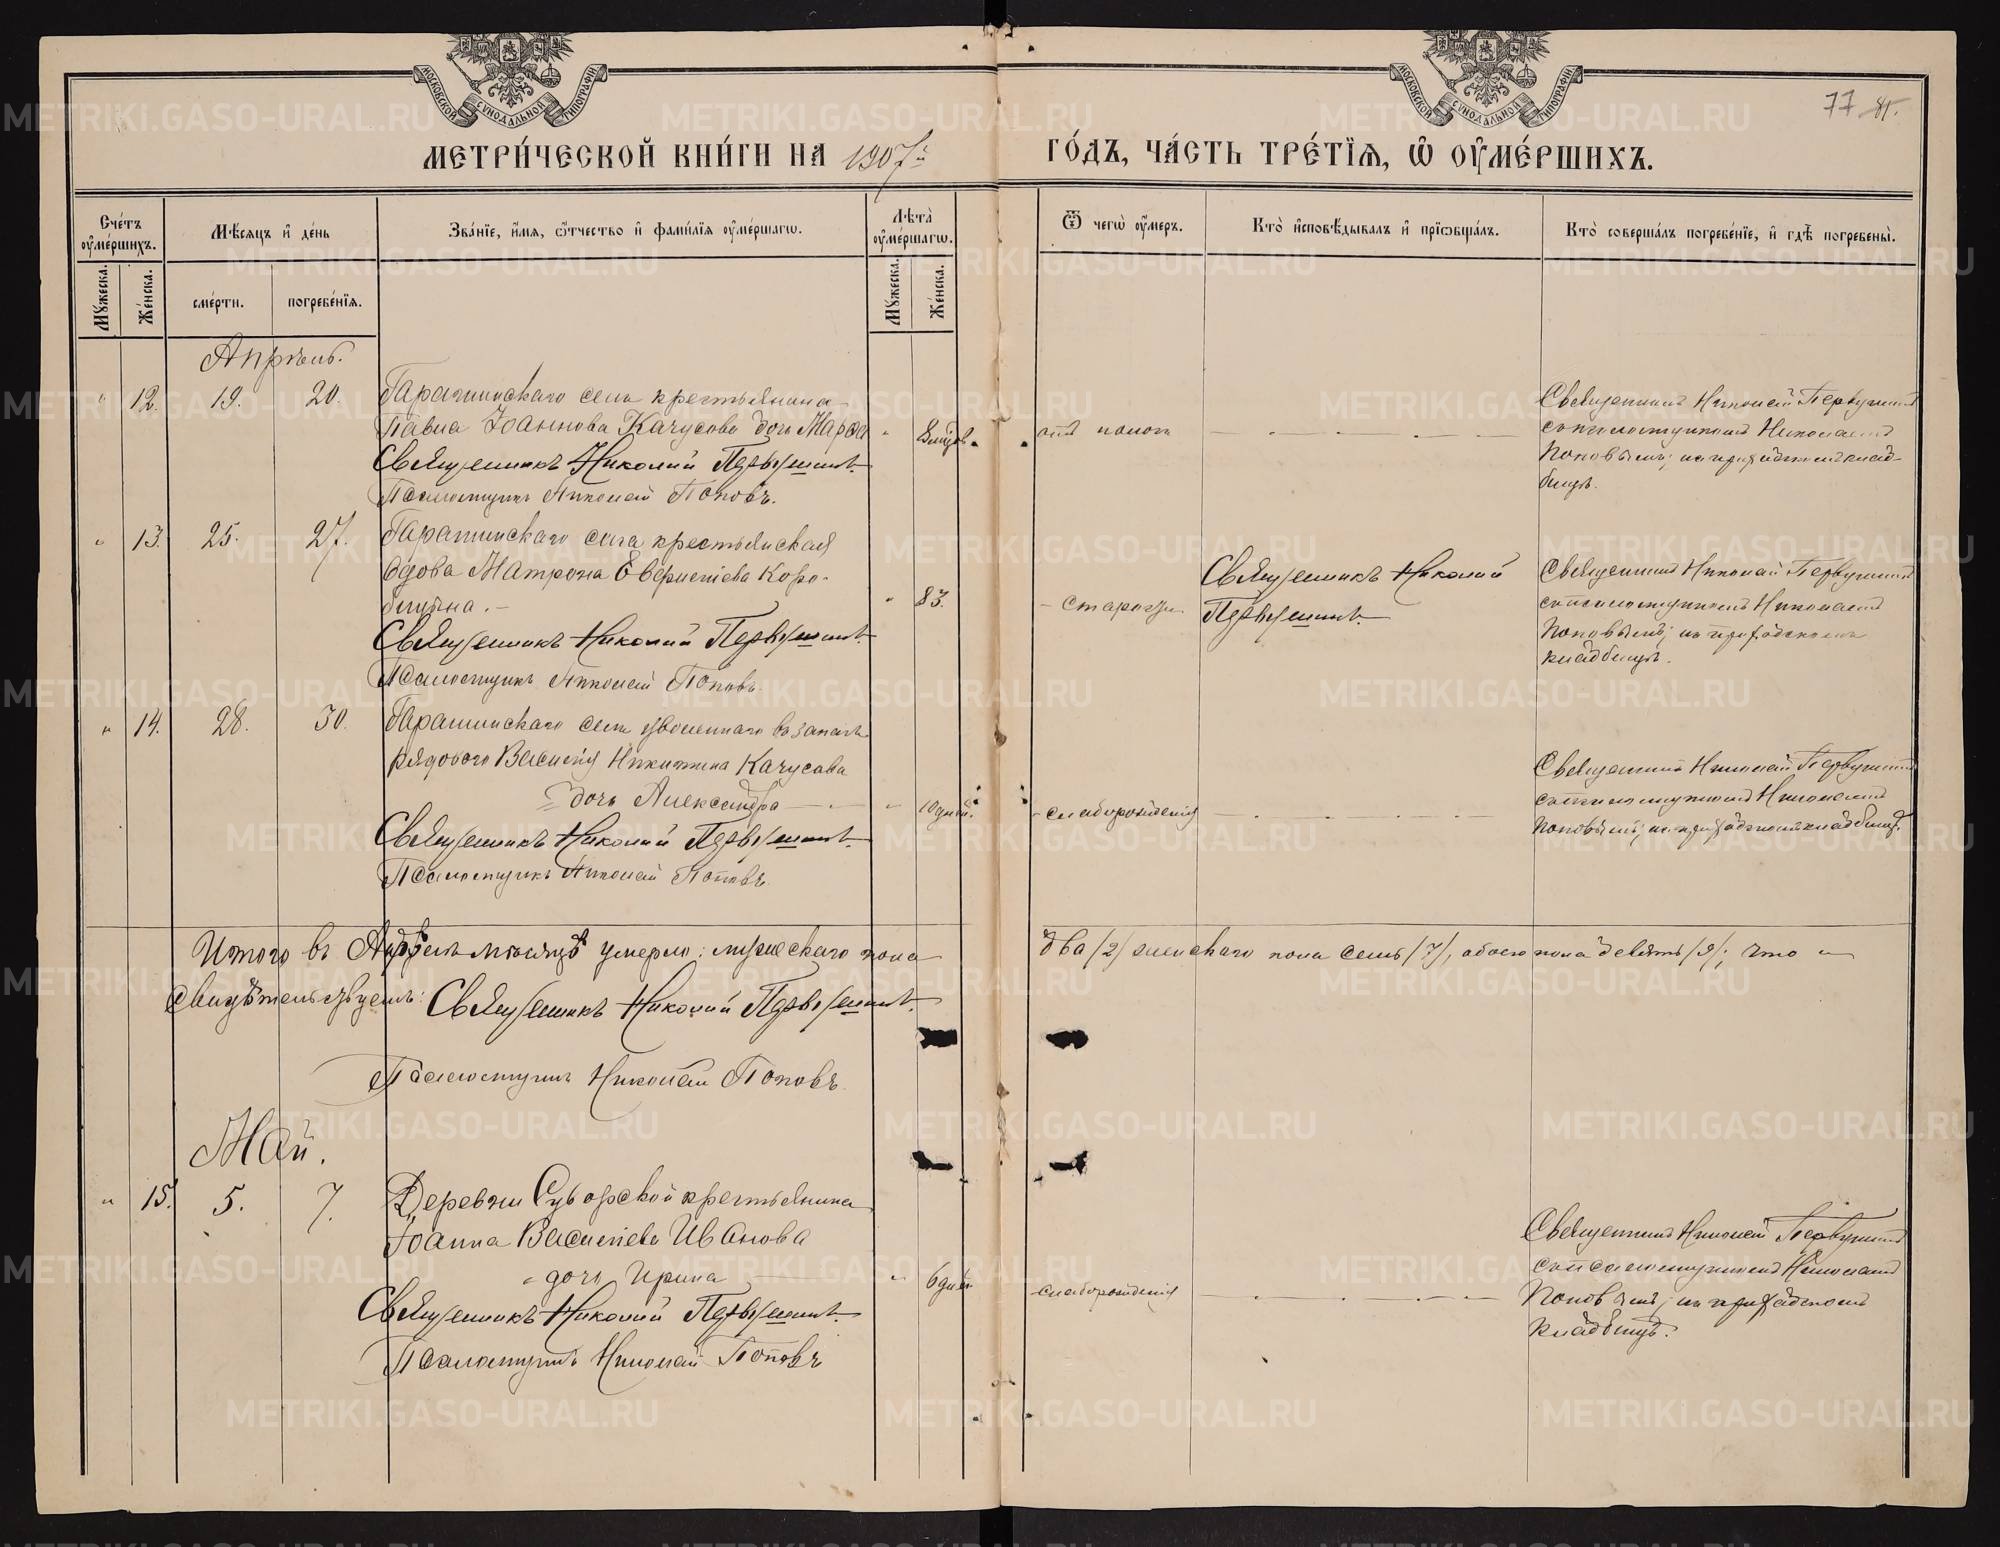 МОСКОВСКОЙ СѴНОДАЛЬНОЙ ТИПОГРАФІИ
МОСКОВСКОЙ СѴНОДАЛЬНОЙ ТИПОГРАФІИ
77
МЕТРИ́ЧЕСКОЙ КНИ́ГИ НА 1907й
ГО́ДЪ, ЧА́СТЬ ТРЕ́ТІѦ, Ѡ҆ ОУ҆МЕ́РШИХЪ.
Сче́тъ оу҆ме́ршихъ.
Мѣ́сѧцъ и҆ де́нь
Зва́нїе, и҆́мѧ, ѻ҆́тчество и҆ фами́лїѧ оу҆ме́ршагѡ.
Лѣта̀ оу҆ме́ршагѡ.
Ѿ чегѡ̀ оу҆́меръ.
Кто̀ и҆сповѣ́дывалъ и҆ прїѡбща́лъ.
Кто̀ соверша́лъ погребе́нїе, и҆ гдѣ̀ погребены̀.
Мꙋ́жеска.
Же́нска.
сме́рти.
погребе́нїѧ.
Мꙋ́жеска.
Же́нска.
Апрѣль.
" 12. 19. 20. Гарашинскаго села крестьянина
Павла Іоаннова Качусова дочь Марѳа
Священникъ Николай Первушинъ.
Псаломщикъ Николай Поповъ.
Священникъ Николай Первушинъ
съ псаломщикомъ Николаемъ
Поповымъ; на приходскомъ кладбищѣ.
" 13. 25. 27. Гарашинскаго села крестьянская
вдова Матрона Евгениева Коробицына.
" 83. старости
Священникъ Николай Первушинъ.
Псаломщикъ Николай Поповъ.
Священникъ Николай
Первушинъ.
Священникъ Николай Первушинъ
съ псаломщикомъ Николаемъ
Поповымъ; на приходскомъ
кладбищѣ.
" 14. 28. 30. Гарашинскаго села уволеннаго въ запасъ
рядового Василія Никитина Качусова
дочь Александра " 10 дней. слаборожденія
Священникъ Николай Первушинъ.
Псаломщикъ Николай Поповъ.
Священникъ Николай Первушинъ
съ псаломщикомъ Николаемъ
Поповымъ; на приходскомъ кладбищѣ.
Итого въ Апрѣлѣ мѣсяцѣ умерло: мужескаго пола два /2/ женскаго пола семь /7/, обоего пола девять /9/; что и
свидѣтельствуемъ: Священникъ Николай Первушинъ.
Псаломщикъ Николай Поповъ.
Май.
" 15. 5. 7. Деревни Суворской крестьянина
Іоанна Васильева Иванова
дочь Ирина " 6 дней слаборожденія
Священникъ Николай Первушинъ.
Псаломщикъ Николай Поповъ
Священникъ Николай Первушинъ
съ псаломщикомъ Николаемъ
Поповымъ; на приходскомъ
кладбищѣ.
METRIKI.GASO-URAL.RU